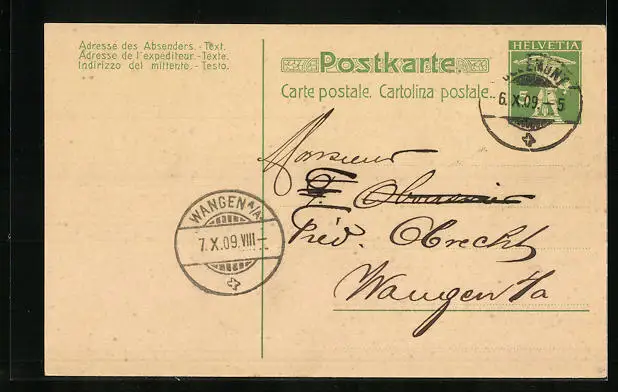 Adresse des Absenders. - Text.
Adresse de l'expéditeur. - Texte.
Indirizzo del mittente. - Testo.
Postkarte.
Carte postale. Cartolina postale.
HELVETIA
6. X. 09. - 5
Monsieur
Fréd. Obrecht
Wangen a/a
WANGEN A/A.
7. X. 09. VIII -